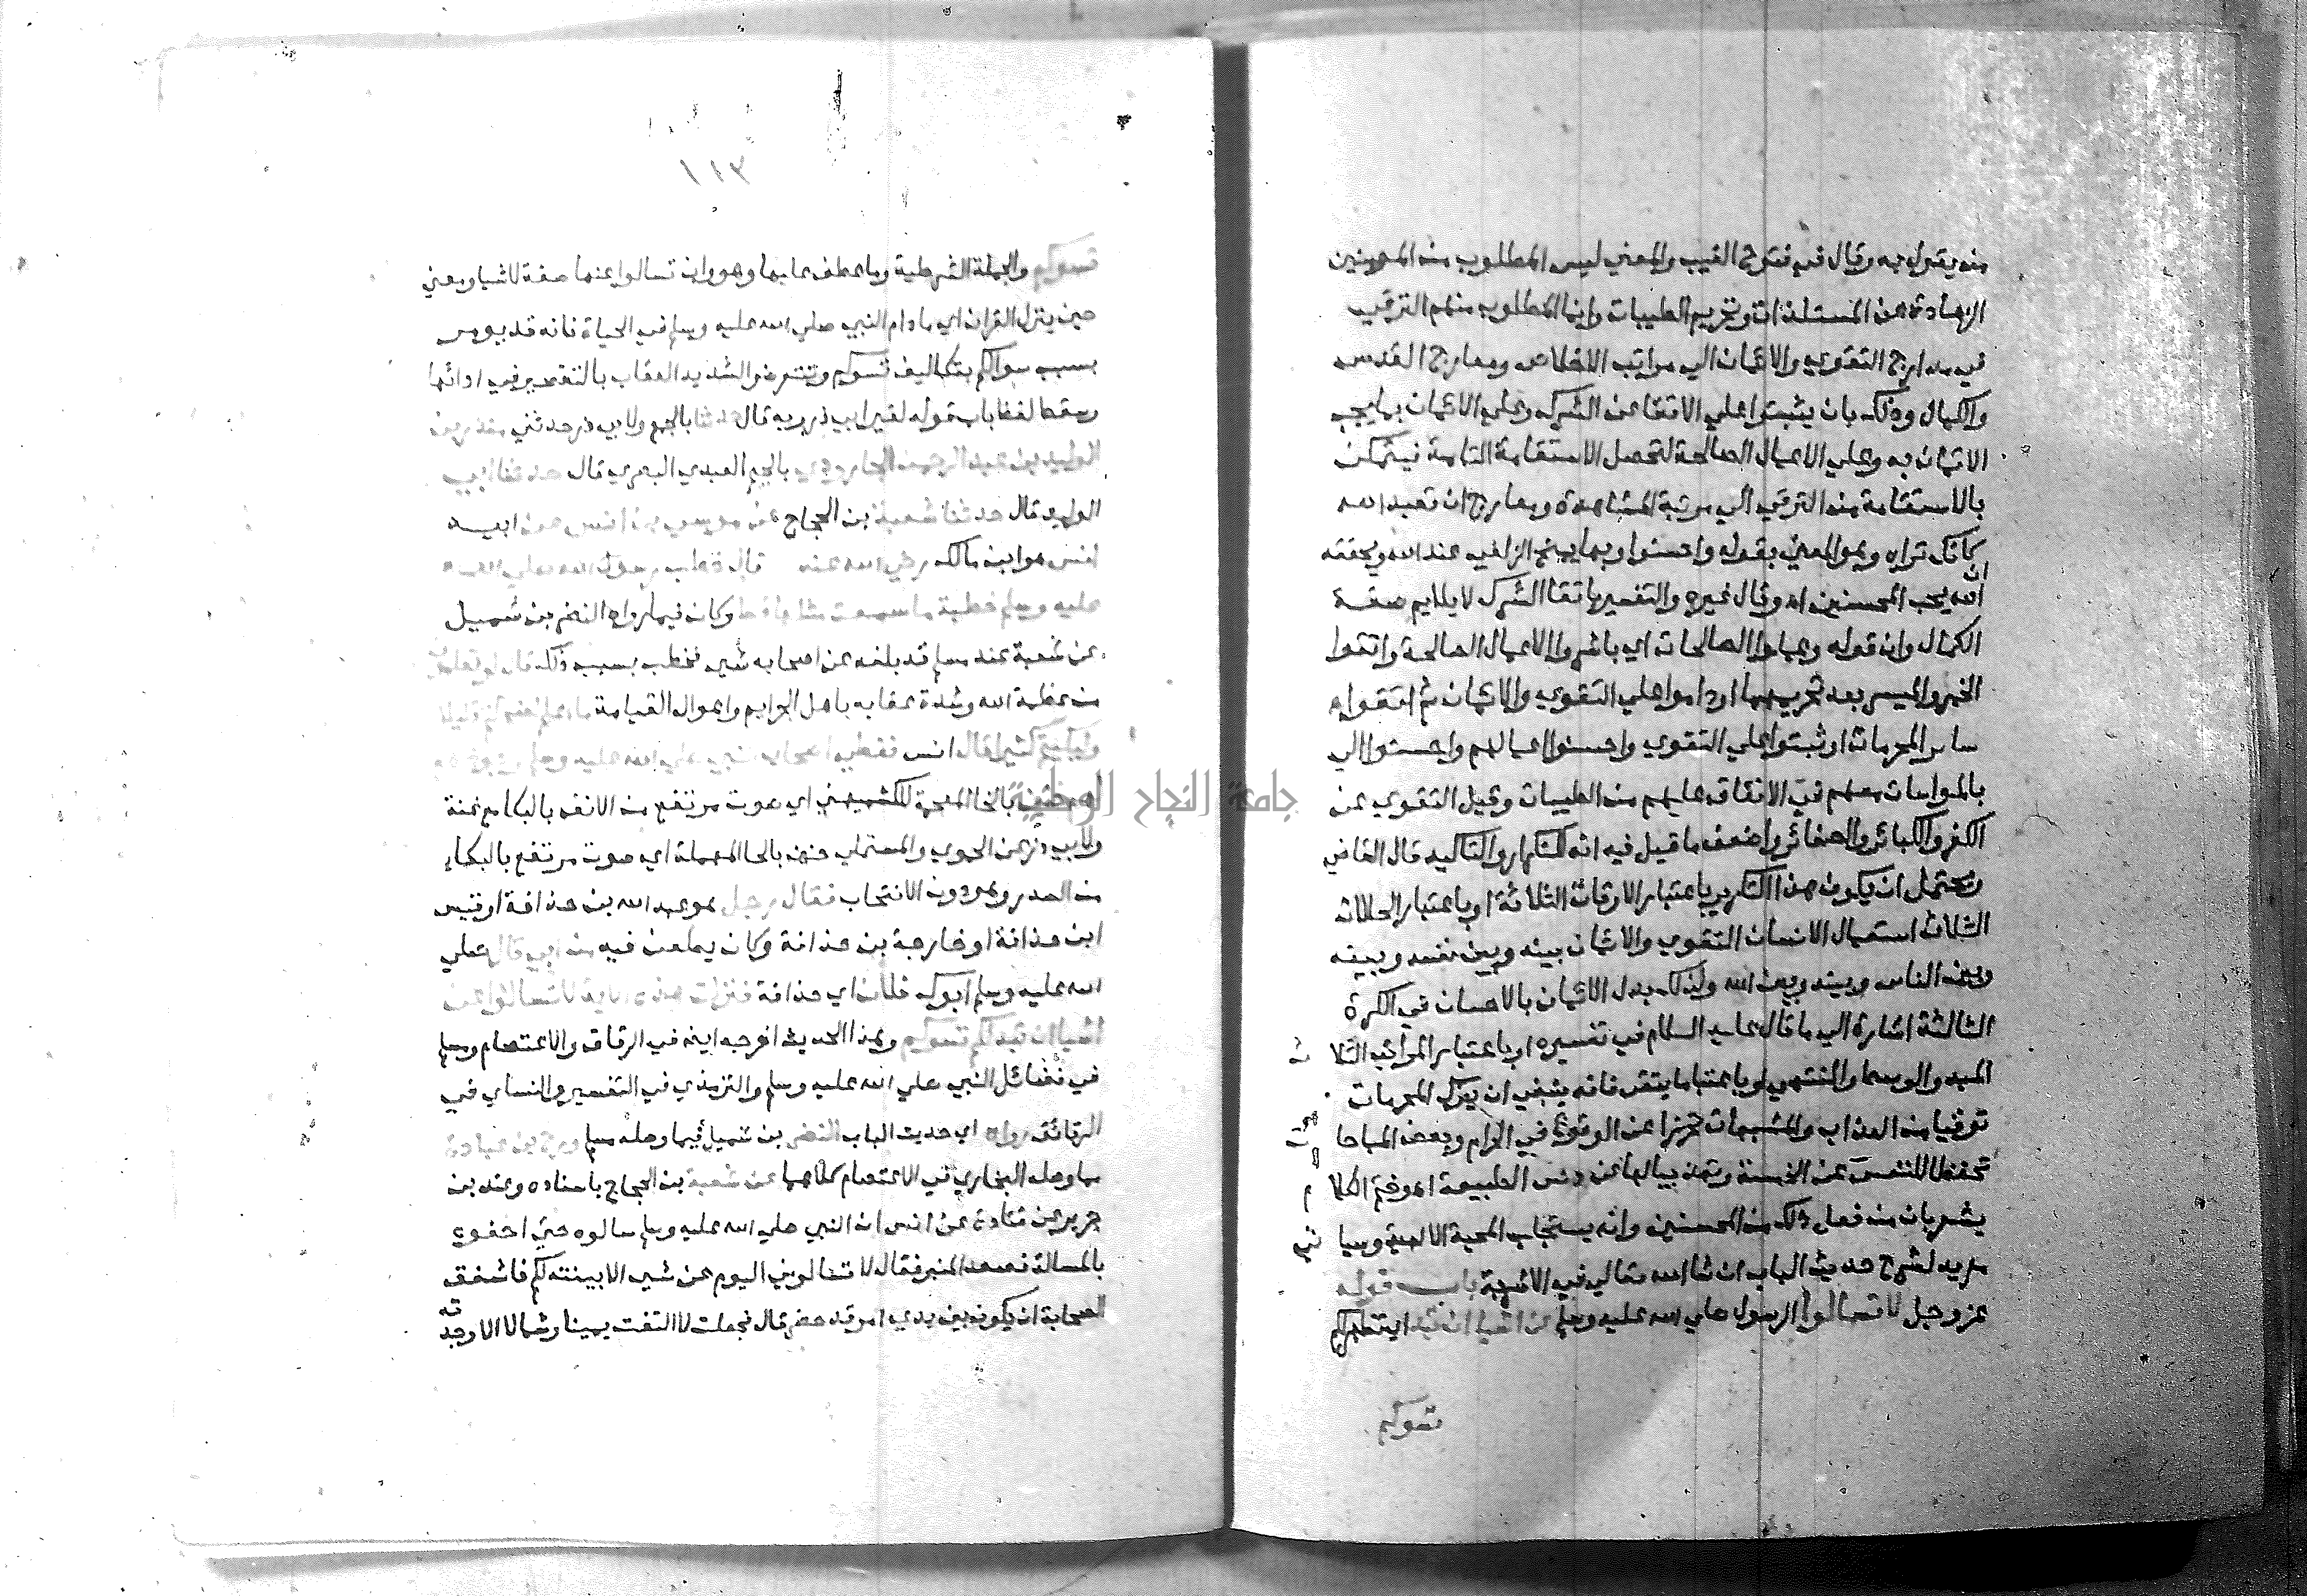 من يقول به وقال في فتوح الغيب والمعني ليس المطلوب من المومنين
الزهادة عن المستلذات وتحريم الطيبات وانما المطلوب منهم الترقي
في مدارج التقوي والايمان الي مراتب الاخلاص ومعارج القدس
والكمال وذلك بان يثبتوا علي الاتقا عن الشرك وعلي الايمان بما يجب
الايمان به وعلي الاعمال الصالحة لتحصل الاستقامة التامة فيتمكن
بالاستقامة من الترقي الي مرتبة المشاهدة ومعارج ان تعبد الله
كانك تراه وهو المعني بقوله واحسنوا وبها يمنح الزلفي عند الله ويحققه
ان
الله يحب المحسنين اه وقال غيره والتفسير باتقا الشرك لا يلايم صفة
الكمال وان قوله وعملوا الصالحات اي باشروا الاعمال الصالحة واتقوا
الخمر والميسر بعد تحريمهما او داموا علي التقوي والايمان ثم اتقوا
ساير المحرمات او ثبتوا علي التقوي واحسنوا اعمالهم واحسنوا الي
بالمواسات معهم في الانفاق عليهم من الطيبات وقيل التقوي عن
الكفر والكبائر والصغائر واضعف ما قيل فيه انه للتكرار والتاكيد قال القاضي
ويحتمل ان يكون هذا التكرير باعتبار الاوقات الثلاثة او باعتبار الحالات
الثلاث استعمال الانسان التقوي والايمان بينه وبين نفسه وبينه
وبين الناس وبينه وبين الله ولذلك بدل الايمان بالاحسان في الكرة
الثالثة اشارة الي ما قال عليه السلام في تفسيره او باعتبار المراتب الثلا ث
المبدو والوسط والمنتهي او باعتبار ما يتقي فانه ينبغي ان يترك المحرمات
توقيا من العذاب والمشبهات تحرزا عن الوقوع في الحرام وبعض المباحا ت
تحفظا للنفس عن الخسة وتهذيبا لها عن دنس الطبيعة اه وختم الكلا م
يشعر بان من فعل ذلك من المحسنين وانه يستجلب المحبة الالهية وسيا تي
مزيد لشرح حديث الباب ان شا الله تعالي في الاشربة باب قوله
عز وجل لا تسالوا الرسول صلي الله عليه وسلم عن اشيا ان تبد اي تظهر لكم
تسوكم
١١٣
تسوكم والجملة الشرطية وما عطف عليها وهو وان تسالوا عنها صفة لاشيا ومعني
حين ينزل القران اي ما دام النبي صلي الله عليه وسلم في الحياة فانه قد يومر
بسبب سوالكم بتكاليف تسوكم وتتعرضوا لشديد العقاب بالتقصير في ادائها
وسقط لفظ باب قوله لغير ابي ذر وبه قال حدثنا بالجمع ولابي ذر حدثني منذر بن
الوليد بن عبد الرحمن الجارودي بالجيم العبدي البصري قال حدثنا ابي
الوليد قال حدثنا شعبة بن الحجاج عن موسي بن انس عن ابيه
انس هو ابن مالك رضي الله عنه قال خطب رسول الله صلي الله
عليه وسلم خطبة ما سمعت مثلها قط وكان فيما رواه النضر بن شميل
عن شعبة عند مسلم قد بلغه عن اصحابه شي فخطب بسبب ذلك قال لو تعلمون
من عظمة الله وشدة عقابه باهل الجرايم واهوال القيامة ما اعلم لضحكتم قليلا
ولبكيتم كثيرا قال انس فغطي اصحاب النبي صلي الله عليه وسلم وجوههم
لهم خنين بالخا المعجمة للكشميهني اي صوت مرتفع من الانف بالبكا مع غنة
ولابي ذر عن الحموي والمستملي حنين بالحا المهملة اي صوت مرتفع بالبكاء
من الصدر وهو دون الانتحاب فقال رجل هو عبد الله بن حذافة او قيس
ابن حذافة او خارجة بن حذافة وكان يطعن فيه من ابي قال صلي
الله عليه وسلم ابوك فلان اي حذافة فنزلت هذه الاية لا تسالوا عن
اشيا ان تبد لكم تسوكم وهذا الحديث اخرجه ايضا في الرقاق والاعتصام ومسلم
في فضائل النبي صلي الله عليه وسلم والترمذي في التفسير والنساي في
الرقائق رواه اي حديث الباب النضر بن شميل فيما وصله مسلم وروح بن عبادة
مما وصله البخاري في الاعتصام كلاهما عن شعبة بن الحجاج باسناده وعند بن
جرير عن قتادة عن انس ان النبي صلي الله عليه وسلم سالوه حتي احفوه
بالمسالة فصعد المنبر فقال لا تسالوني اليوم عن شي الا بينته لكم فاشفق
الصحابة ان يكون بين يدي امر قد حضر قال فجعلت لا التفت يمينا وشمالا الا وجد ته
جامعة النجاح الوطنية